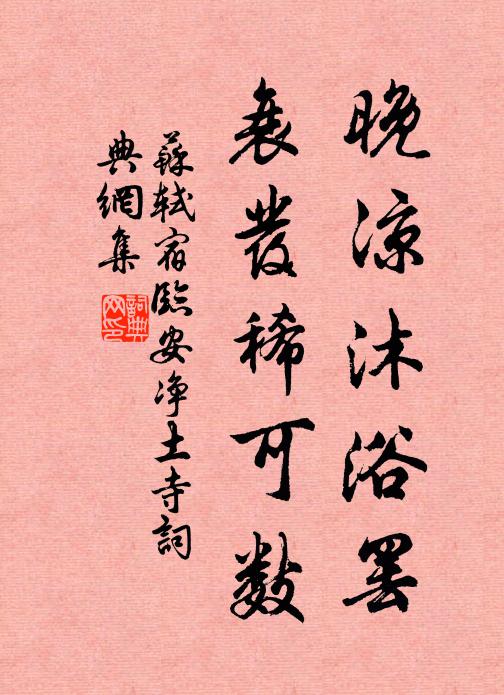 晚涼沐浴罷
衰發稀可數
蘇軾宿臨安淨土寺詞
典網集
詞典
网印